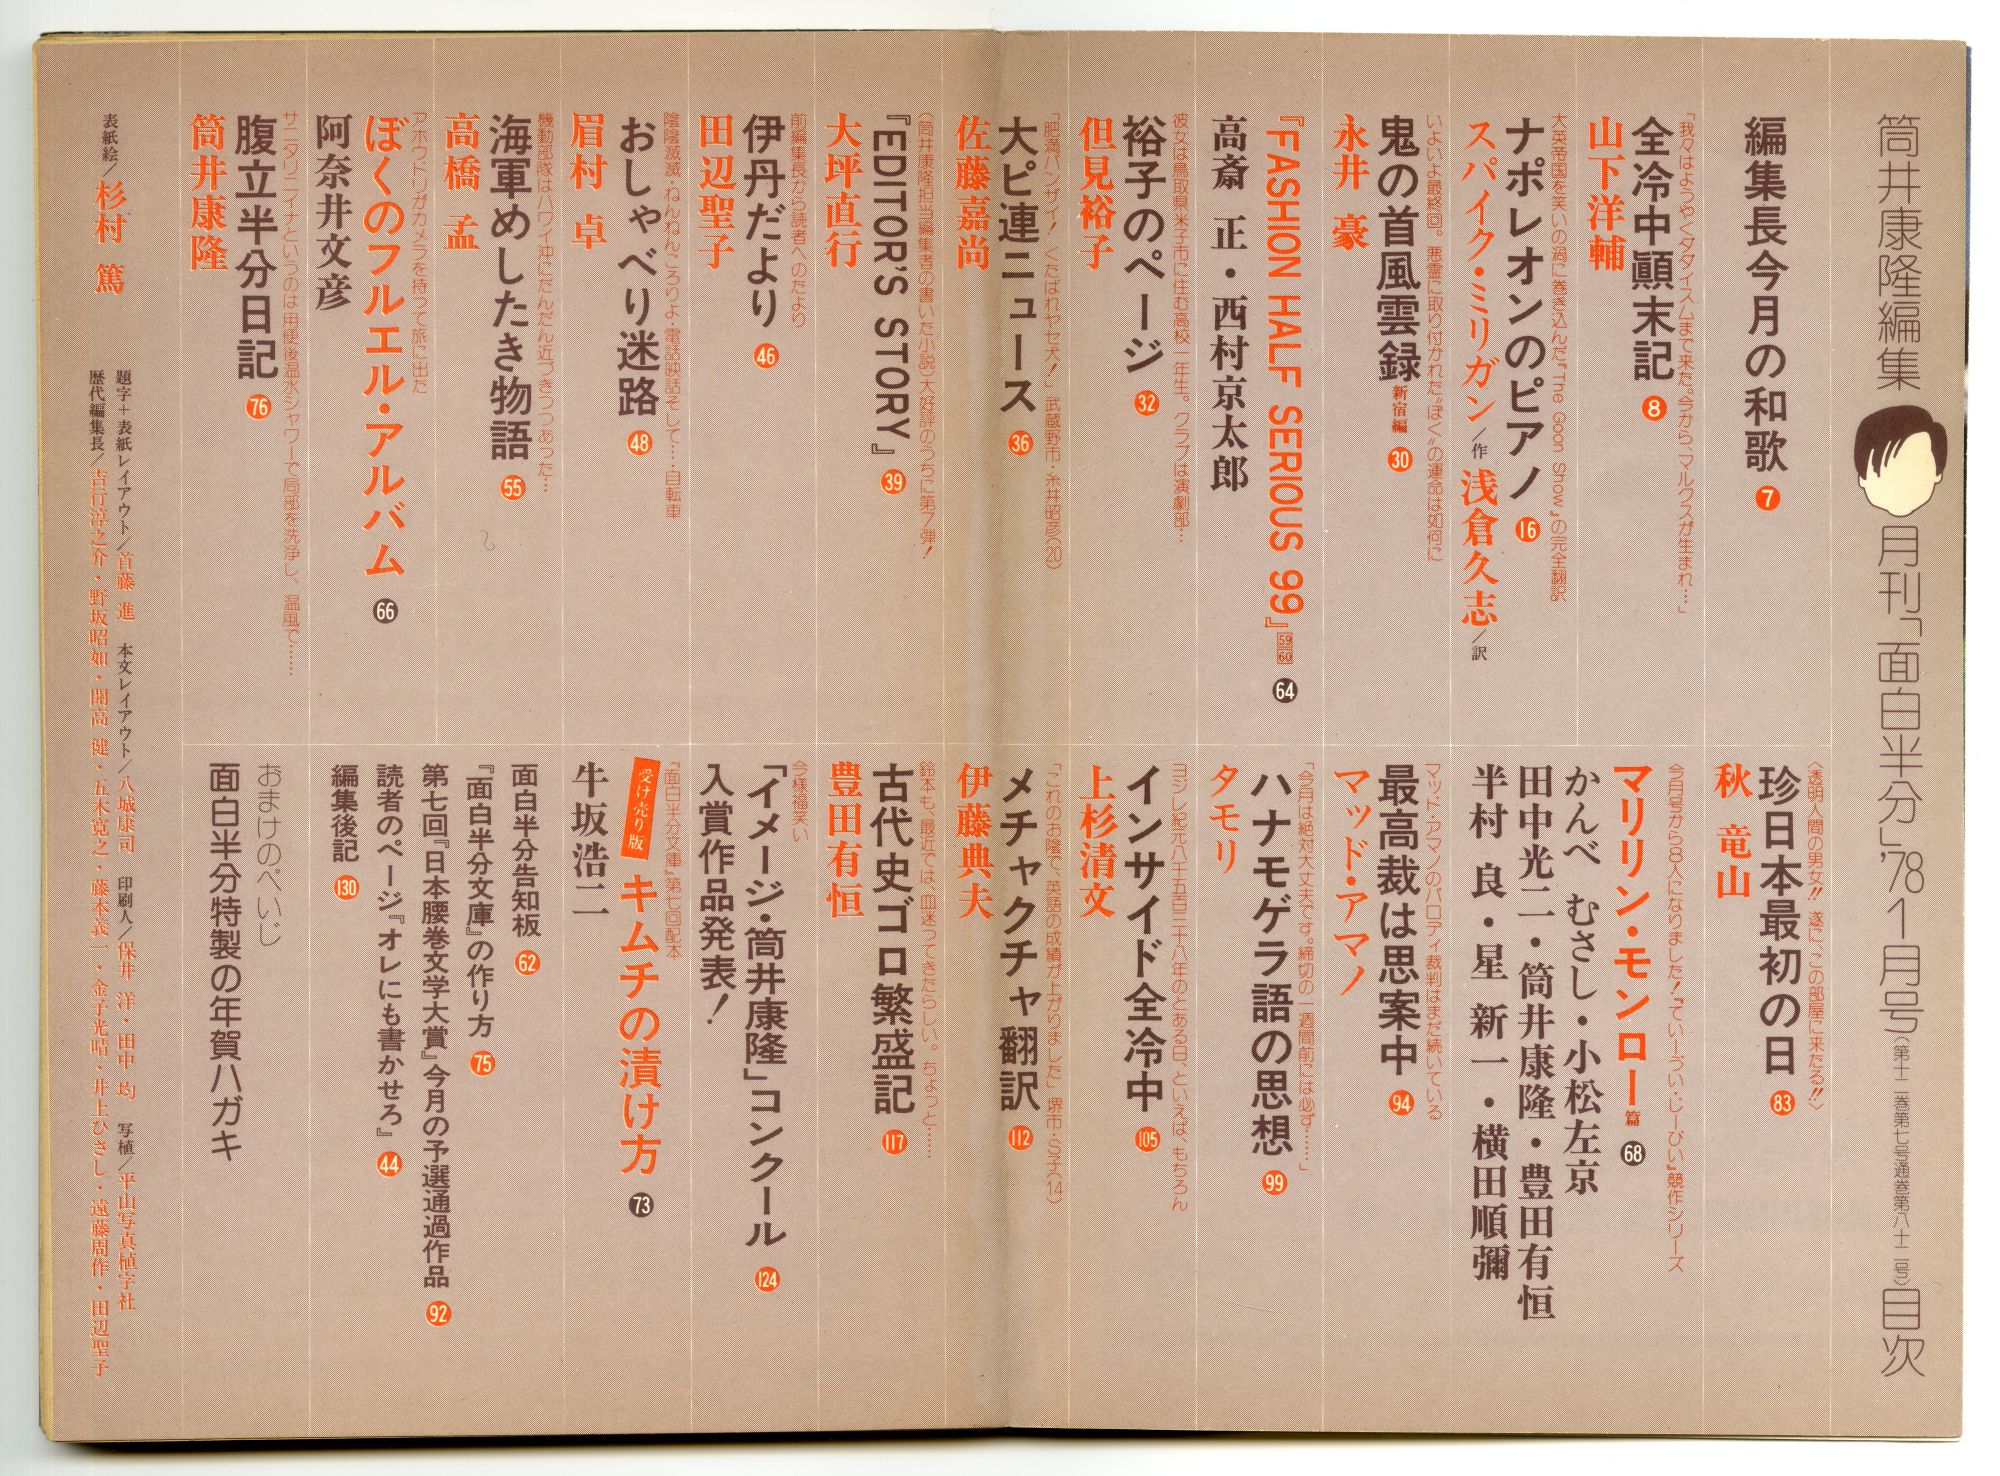 筒井康隆編集 月刊「面白半分」'78 1月号(第十二巻第七号通巻第八十二号)目次
編集長今月の和歌 7
「我々はようやくダダイズムまで来た。今から、マルクスが生まれ…」
全冷中顚末記 8
山下洋輔
大英帝国を笑いの渦に巻き込んだ『The Goon Show』の完全翻訳
ナポレオンのピアノ 16
スパイク・ミリガン/作 浅倉久志/訳
いよいよ最終回。悪霊に取り付かれた“ぼく”の運命は如何に
鬼の首風雲録 新宿編 30
永井 豪
『FASHION HALF SERIOUS 99』 59 60 64
高斎 正・西村京太郎
彼女は鳥取県米子市に住む高校一年生。クラブは演劇部…
裕子のページ 32
但見裕子
「肥満バンザイ！くたばれヤセ犬！」武蔵野市・糸井昭彦(20)
大ピ連ニュース 36
佐藤嘉尚
(筒井康隆担当編集者の書いた小説)大好評のうちに第7弾！
『EDITOR'S STORY』 39
大坪直行
前編集長から読者へのたより
伊丹だより 46
田辺聖子
陰陰滅滅・ねんねんころりよ・電話映話そして…・自転車
おしゃべり迷路 48
眉村 卓
機動部隊はハワイ沖にだんだん近づきつつあった…
海軍めしたき物語 55
高橋 孟
アホウドリがカメラを持つて旅に出た
ぼくのフルエル・アルバム 66
阿奈井文彦
サニタリーニイナというのは用便後温水シャワーで局部を洗浄し、温風で……
腹立半分日記 76
筒井康隆
〈透明人間の男女!! 遂に、この部屋に来たる!!〉
珍日本最初の日 83
秋 竜山
今月号から8人になりました！『てぃーづい・じーびい』競作シリーズ
マリリン・モンロー篇 68
かんべ むさし・小松左京
田中光二・筒井康隆・豊田有恒
半村 良・星 新一・横田順彌
マッド・アマノのパロディ裁判はまだ続いている
最高裁は思案中 94
マッド・アマノ
「今月は絶対大丈夫です。締切の一週間前には必ず……」
ハナモゲラ語の思想 99
タモリ
ヨジレ紀元八十五百三十八年のとある日、といえば、もちろん
インサイド全冷中 105
上杉清文
「これのお陰で、英語の成績が上がりました」堺市・S子(14)
メチャクチャ翻訳 112
伊藤典夫
鈴木も、最近では、血迷ってきたらしい。ちょっと……
古代史ゴロ繁盛記 117
豊田有恒
今様福笑い
「イメージ・筒井康隆」コンクール 124
入賞作品発表！
『面白半分文庫』第七回配本
受け売り版 キムチの漬け方 73
牛坂浩二
面白半分告知板 62
『面白半分文庫』の作り方 75
第七回『日本腰巻文学大賞』今月の予選通過作品 92
読者のページ『オレにも書かせろ』 44
編集後記 130
おまけのぺいじ
面白半分特製の年賀ハガキ
表紙絵/杉村 篤
題字＋表紙レイアウト/首藤 進 本文レイアウト/八城康司 印刷人/保井 洋・田中 均 写植/平山写真植字社
歴代編集長/吉行淳之介・野坂昭如・開高 健・五木寛之・藤本義一・金子光晴・井上ひさし・遠藤周作・田辺聖子